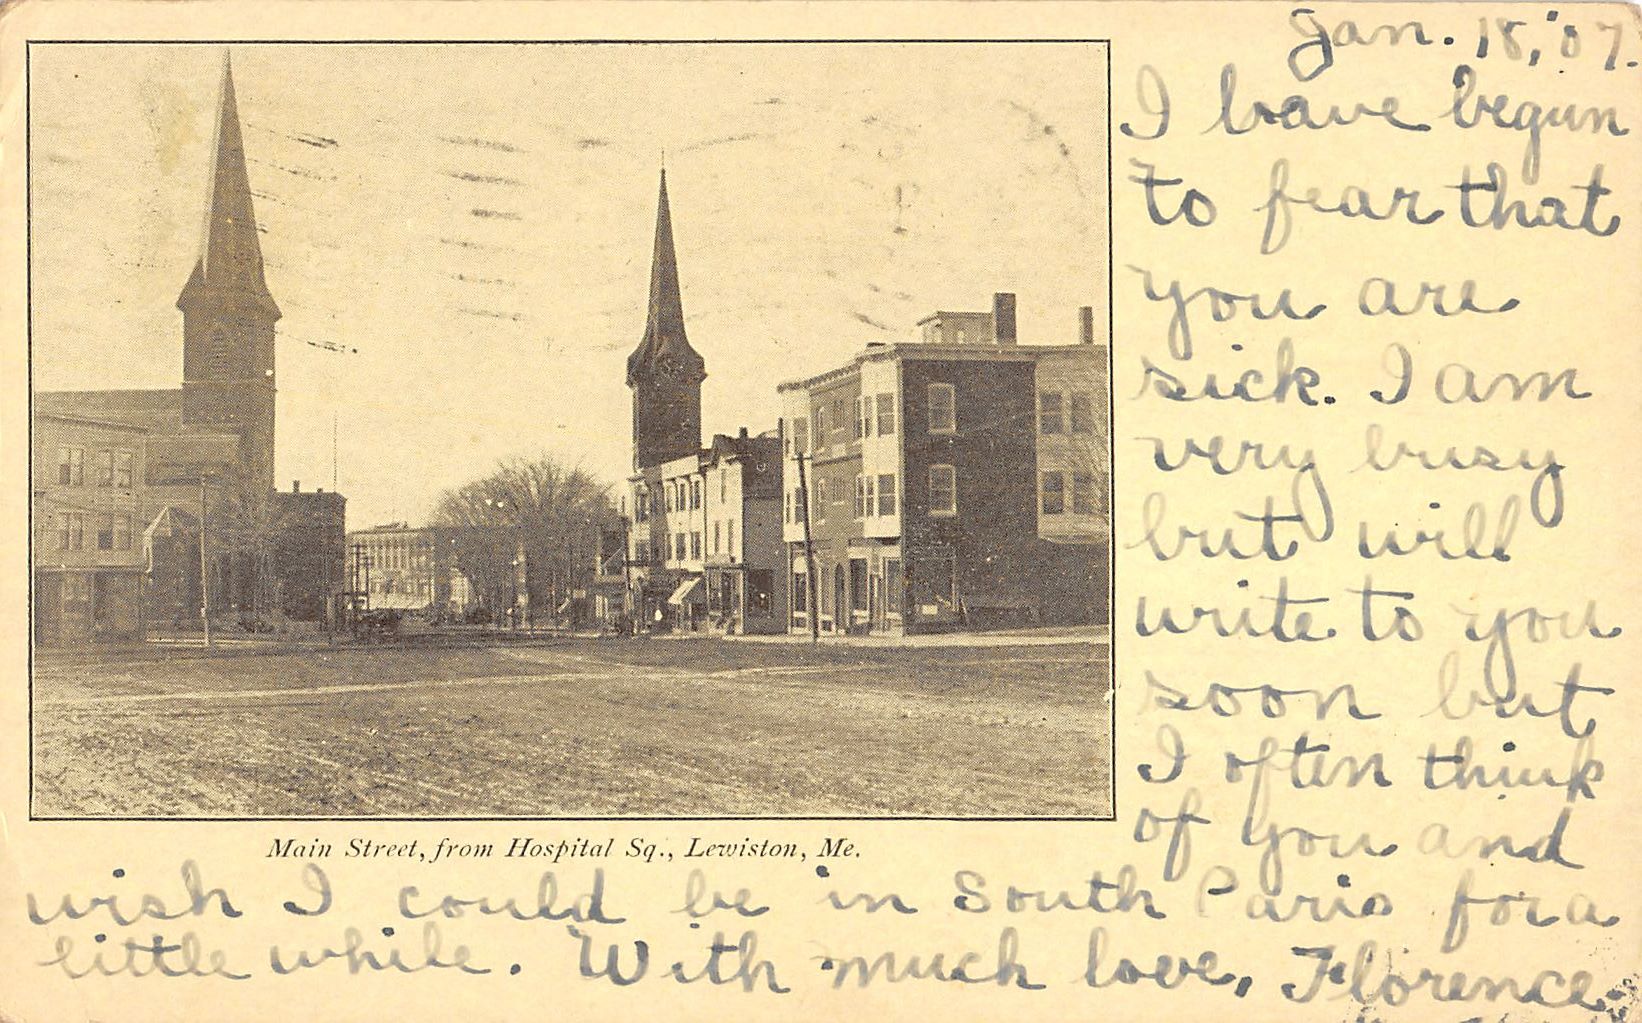 Jan. 18, '07.
I have begun
to fear that
you are
sick. I am
very busy
but will
write to you
soon but
I often think
of you and
Main Street, from Hospital Sq., Lewiston, Me.
wish I could be in South Paris for a
little while. With much love, Florence.